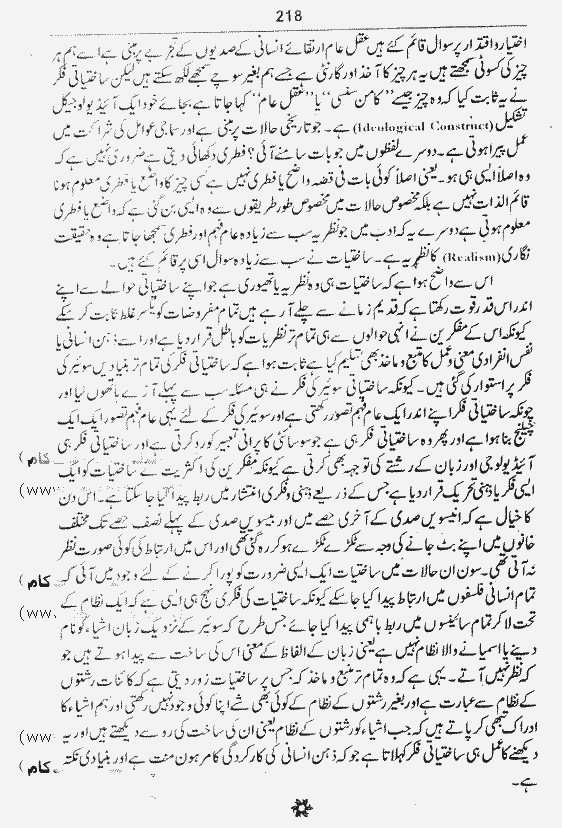 218
اختیار و اقتدار پر سوال قائم کئے ہیں عقل عام ارتقائے انسانی کے صدیوں کے تجربے پر مبنی ہے اسے ہم ہر
چیز کی کسوٹی سمجھتے ہیں یہ ہر چیز کا آخذ اور گارنٹی ہے جسے ہم بغیر سوچے سمجھے لکھ سکتے ہیں لیکن ساختیاتی فکر
نے یہ ثابت کیا کہ وہ چیز جسے "کامن سنس" یا "عقل عام" کہا جاتا ہے بجائے خود ایک آئیڈیولوجیکل
تشکیل (Ideological Construct) ہے۔ جو تاریخی حالات پر مبنی ہے اور سماجی عوامل کی شراکت میں
عمل پیرا ہوتی ہے۔ دوسرے لفظوں میں جو بات سامنے آئی؟ فطری دکھائی دیتی ہے ضروری نہیں ہے کہ
وہ اصلاً ایسی ہی ہو۔ یعنی اصلاً کوئی بات فی نفسہ واضح یا فطری نہیں ہے کسی چیز کا واضح یا فطری معلوم ہونا
قائم الذات نہیں ہے بلکہ مخصوص حالات میں مخصوص طور طریقوں سے وہ ایسی بن گئی ہے کہ واضح یا فطری
معلوم ہوتی ہے دوسرے یہ کہ ادب میں جو نظریہ سب سے زیادہ عام فہم اور فطری سمجھا جاتا ہے وہ حقیقت
نگاری (Realism) کا نظریہ ہے۔ ساختیات نے سب سے زیادہ سوال اسی پر قائم کئے ہیں۔
اس سے واضح ہوا ہے کہ ساختیات ہی وہ نظریہ یا تھیوری ہے جو اپنے ساختیاتی حوالے سے اپنے
اندر اس قدر قوت رکھتا ہے کہ قدیم زمانے سے چلے آ رہے ہیں تمام مفروضات کو یکسر غلط ثابت کر سکے
کیونکہ اس کے مفکرین نے انہی حوالوں سے ہی تمام تر نظریات کو باطل قرار دیا ہے اور اسے ذہن انسانی یا
نفس انفرادی معنی و عمل کا منبع و ماخذ بھی تسلیم کیا ہے ثابت ہوا ہے کہ ساختیاتی فکر کی تمام تر بنیادیں سوئیر کی
فکر پر استوار کی گئی ہیں۔ کیونکہ ساختیاتی سوئیر کی فکر نے ہی مسئلہ سب سے پہلے آڑے ہاتھوں لیا اور
چونکہ ساختیاتی فکر اپنے اندر ایک عام فہم تصور رکھتی ہے اور سوئیر کی فکر کے لئے یہی عام فہم تصور ایک ایک
چیلنج بنا ہوا ہے اور پھر وہ ساختیاتی فکر ہی ہے جو سوسائٹی کا پرانی تعبیر کو رد کرتی ہے اور ساختیاتی فکر ہی
آئیڈیولوجی اور زبان کے رشتے کی توجیہہ بھی کرتی ہے کیونکہ مفکرین کی اکثریت نے ساختیات کو ایک
ایسی فکر یا ذہنی تحریک قرار دیا ہے جس کے ذریعے ذہنی و فکری انتشار میں ربط پیدا کیا جا سکتا ہے۔ اس دن
کا خیال ہے کہ انیسویں صدی کے آخری حصے میں اور بیسویں صدی کے پہلے نصف حصے تک مختلف
خانوں میں اپنے بٹ جانے کی وجہ سے ٹکڑے ٹکڑے ہو کر رہ گئی تھی اور اس میں ارتباط کی کوئی صورت نظر
نہ آتی تھی۔ سون ان حالات میں ساختیات ایک ایسی ضرورت کو پورا کرنے کے لئے وجود میں آئی کہ
تمام انسانی فلسفوں میں ارتباط پیدا کیا جا سکے کیونکہ ساختیات کی فکری نہج ہی ایسی ہے کہ ایک نظام کے
تحت لا کر تمام سائینسوں میں ربط باہمی پیدا کیا جائے جس طرح کہ سوئیر کے نزدیک زبان اشیاء کو نام
دینے یا اسمیانے والا نظام نہیں ہے یعنی زبان کے الفاظ کے معنی اس کی ساخت سے پیدا ہوتے ہیں جو
کہ نظر نہیں آتے۔ یہی ہے کہ وہ تمام تر منبع و ماخذ کہ جس پر ساختیات زور دیتی ہے کہ کائنات رشتوں
کے نظام سے عبارت ہے اور بغیر رشتوں کے نظام کے کوئی بھی شے اپنا کوئی وجود نہیں رکھتی اور ہم اشیاء کا
ادراک تبھی کر پاتے ہیں کہ جب اشیاء کو رشتوں کے نظام یعنی ان کی ساخت کی رو سے دیکھتے ہیں اور یہ
دیکھنے کا عمل ہی ساختیاتی فکر کہلاتا ہے جو کہ ذہن انسانی کی کارکردگی کا مرہون منت ہے اور بنیادی نکتہ
ہے۔
کام (
(WW
کام (
(WW.
(WW
کام (